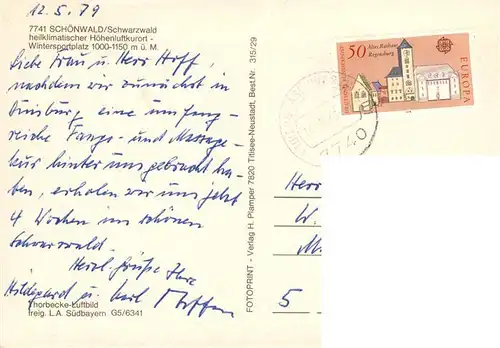 12.5.79
7741 SCHÖNWALD/Schwarzwald
heilklimatischer Höhenluftkurort -
Wintersportplatz 1000-1150 m ü. M.
Liebe Frau u. Herr Hoff,
nachdem wir zunächst in
Duisburg eine umfang-
reiche Fango- und Massage-
kur hinter uns gebracht ha-
ben, erholen wir uns jetzt
4 Wochen im schönen
Schwarzwald.
Herzl. Grüße Ihre
Hildegard u. Karl
Thorbecke-Luftbild
freig. L.A. Südbayern G5/6341
FOTOPRINT - Verlag H. Plamper 7820 Titisee-Neustadt, Best.Nr. 315/29
50
Altes Rathaus
Regensburg
DEUTSCHE BUNDESPOST
EUROPA
CEPT
Herr
W.
M.
5